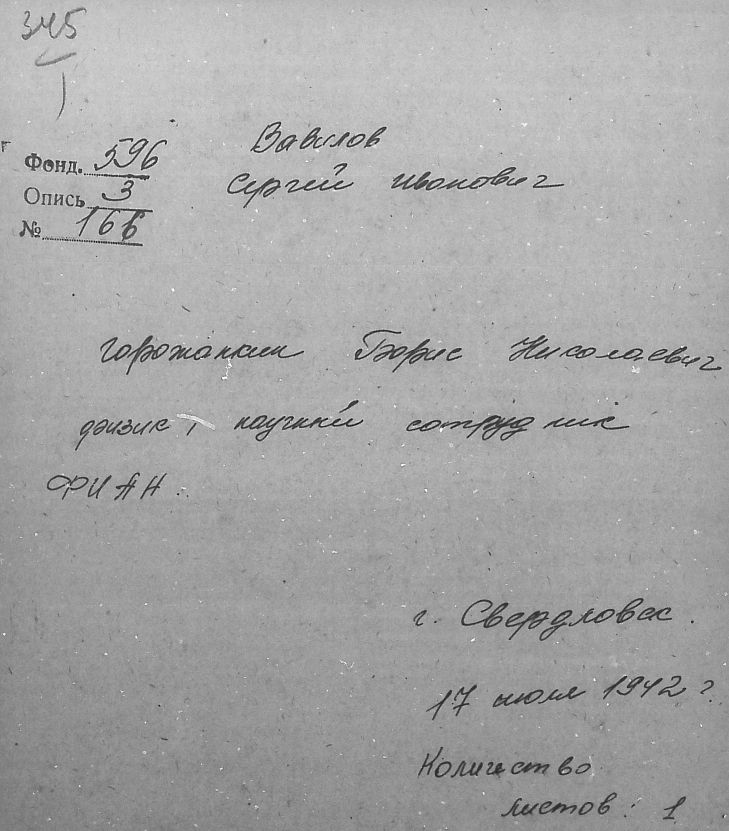 345
1
Фонд. 596
Опись 3
№ 166
Вавилов
Сергей Иванович
Горожанкин Борис Николаевич
физик, научный сотрудник
ФИАН.
г. Свердловск.
17 июля 1942 г.
Количество
листов: 1